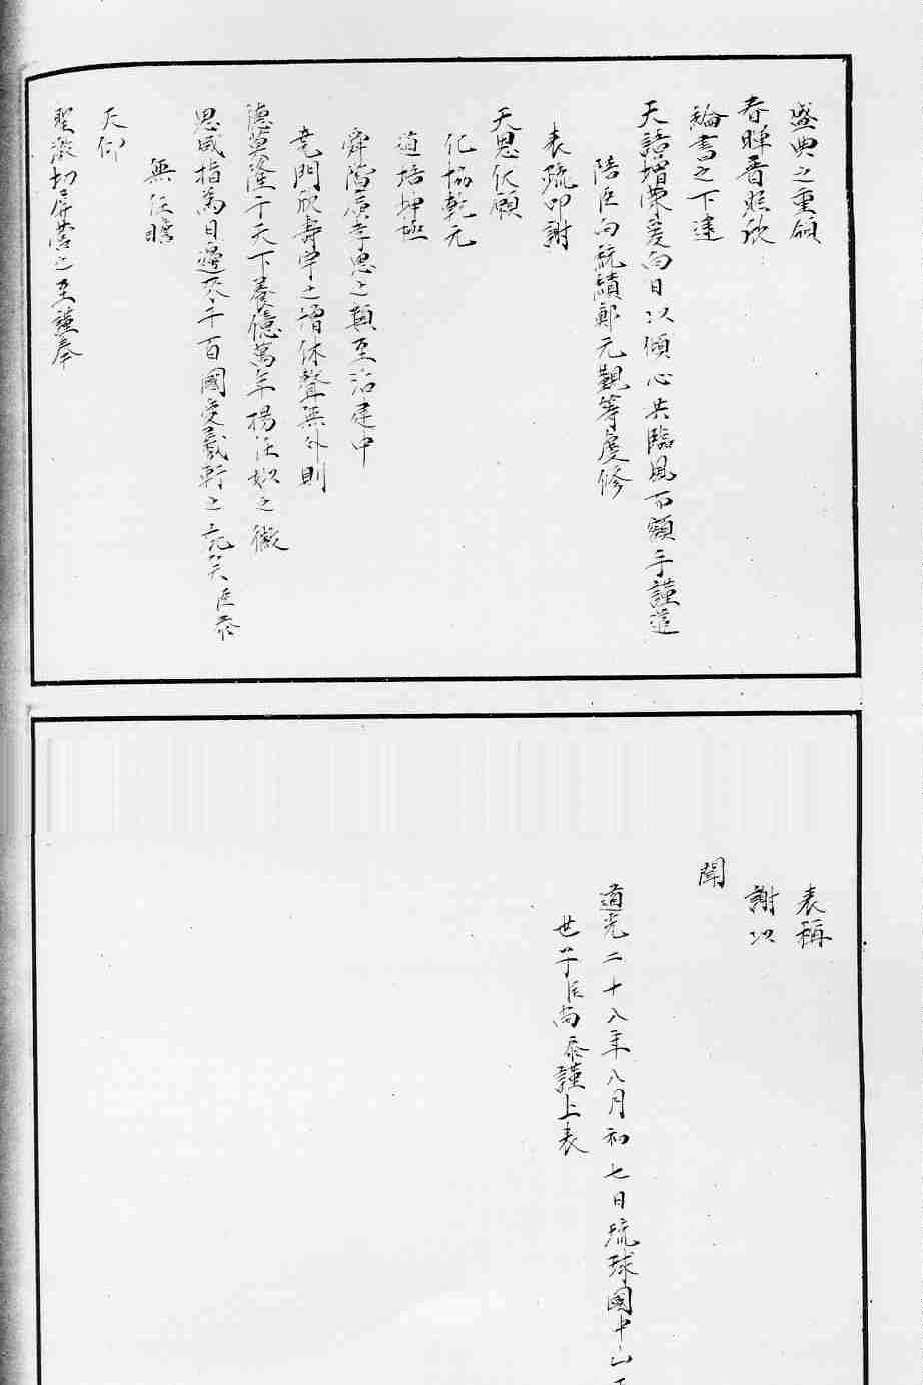 盛典之重頒
春暉普照欣
綸書之下逮
天語增榮爰向日以傾心共臨風而額手謹遣
陪臣向統績鄭元觀等虔修
表疏叩謝
天恩伏願
化協乾元
道培坤極
舜階廣孝思之類至治建中
堯門欣壽宇之增休聲無外則
德並隆于天下養億萬年揚任姒之徽
恩咸指為日邊來千百國慶羲軒之祝矣臣泰
無任瞻
天仰
聖激切屏營之至謹奉
表稱
謝以
聞
道光二十八年八月初七日琉球國中山王
世子臣尚泰謹上表